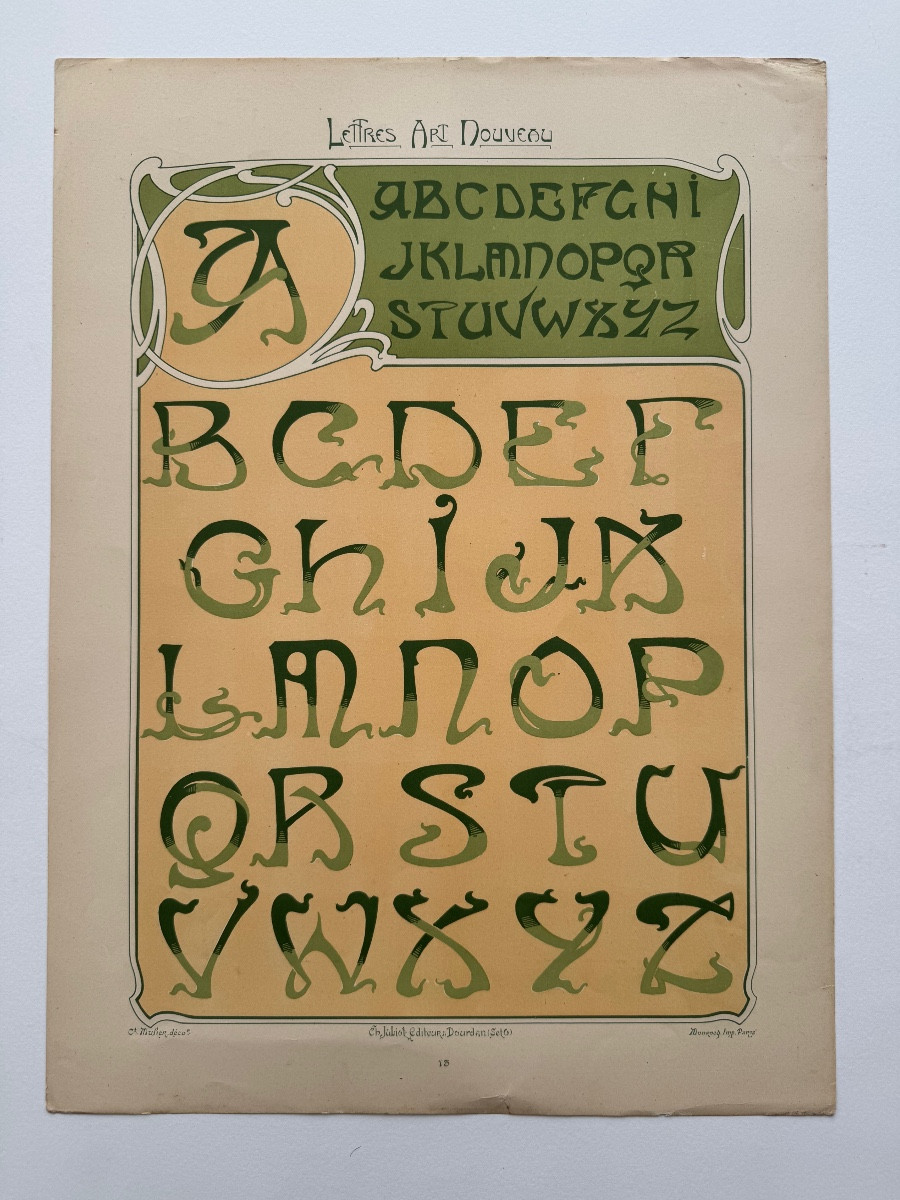 Lettres Art Nouveau
A
ABCDEFGHI
JKLMNOPQR
STUVWXYZ
BCDEF
GHIJK
LMNOP
QRSTU
VWXYZ
Ch. Juliot, Editeur à Dourdan (S et O)
Monrocq. Imp. Paris